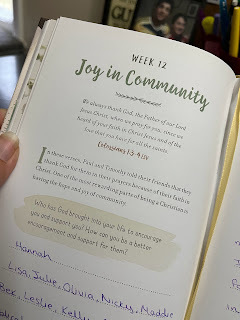 GU
WEEK 12
Joy in Community
We always thank God, the Father of our Lord
Jesus Christ, when we pray for you, since we
heard of your faith in Christ Jesus and of the
love that you have for all the saints.
Colossians 1:3-4
In these verses, Paul and Timothy told their friends that they
thank God for them in their prayers because of their faith in
Christ. One of the most rewarding parts of being a Christian is
having the hope and joy of community.
Who has God brought into your life to encourage
you and support you? How can you be a better
encouragement and support for them?
Hannah
Lisa, Julie, Olivia, Nicky, Maddie
Bek, Leslie, Kelly